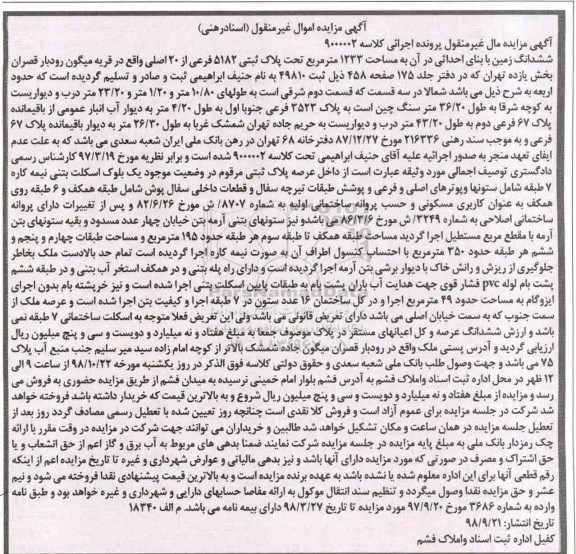 آگهی مزایده اموال غیرمنقول (اسنادرهنی)
آگهی مزایده مال غیرمنقول پرونده اجرائی کلاسه ۹۰۰۰۰۲
ششدانگ زمین با بنای احداثی در آن به مساحت ۱۲۳۳ مترمربع تحت پلاک ثبتی ۵۱۸۲ فرعی از ۲۰ اصلی واقع در قریه میگون رودبار قصران
بخش یازده تهران که در دفتر جلد ۱۷۵ صفحه ۴۵۸ ذیل ثبت ۴۹۸۱۰ به نام حنیف ابراهیمی ثبت و صادر و تسلیم گردیده است که حدود
اربعه به شرح ذیل می باشد شمالا در سه قسمت که قسمت دوم شرقی است به طولهای ۱۰/۸۰ متر و ۱/۲۰ متر و ۲۳/۲۰ متر درب و دیواریست
به کوچه شرقا به طول ۳۶/۲۰ متر سنگ چین است به پلاک ۳۵۲۳ فرعی جنوبا اول به طول ۴/۲۰ متر به دیوار آب انبار عمومی از باقیمانده
پلاک ۶۷ فرعی دوم به طول ۴۳/۲۰ متر درب و دیواریست به حریم جاده تهران شمشک غربا به طول ۲۶/۳۰ متر به دیوار باقیمانده پلاک ۶۷
فرعی و به موجب سند رهنی ۲۱۶۳۳۶ مورخ ۸۷/۱۲/۲۷ دفترخانه ۶۸ تهران در رهن بانک ملی ایران شعبه سعدی می باشد که به علت عدم
ایفای تعهد منجر به صدور اجرائیه علیه آقای حنیف ابراهیمی تحت کلاسه ۹۰۰۰۰۲ شده است و برابر نظریه مورخ ۹۷/۳/۱۹ کارشناس رسمی
دادگستری توصیف اجمالی مورد وثیقه عبارت است از داخل عرصه پلاک ثبتی مرقوم در وضعیت موجود یک بلوک اسکلت بتنی نیمه کاره
۷ طبقه شامل ستونها وپوترهای اصلی و فرعی و پوشش طبقات تیرچه سفال و قطعات داخلی سفال پوش شامل طبقه همکف و ۶ طبقه روی
همکف به عنوان کاربری مسکونی و حسب پروانه ساختمانی اولیه به شماره ۸۷۰۷/ ش مورخ ۸۲/۶/۲۶ و پس از تغییرات دارای پروانه
ساختمانی اصلاحی به شماره ۳۲۴۹/ ش مورخ ۸۶/۳/۶ می باشدو نیز ستونهای بتنی آرمه بتن خیابان چهار عدد مسدود و بقیه ستونهای بتن
آرمه با مقطع مربع مستطیل اجرا گردید مساحت طبقه همکف تا طبقه سوم هر طبقه حدود ۱۹۵ مترمربع و مساحت طبقات چهارم و پنجم و
ششم هر طبقه حدود ۳۵۰ مترمربع با احتساب کنسول اطراف آن به صورت نیمه کاره اجرا گردیده است تمام حد بالادست ملک بخاطر
جلوگیری از ریزش و رانش خاک با دیوار برشی بتن آرمه اجرا گردیده است و دارای راه پله بتنی و در همکف استخر آب بتنی و در طبقه ششم
پشت بام لوله pvc فشار قوی جهت هدایت آب باران پشت بام به طبقات پایین اسکلت بتنی اجرا شده است و نیز خرپشته بام بدون اجرای
ایزوگام به مساحت حدود ۴۹ مترمربع اجرا و در کل ساختمان ۱۶ عدد ستون در ۷ طبقه اجرا و کیفیت بتن اجرا شده است و عرصه ملک از
سمت جنوب که به سمت خیابان اصلی می باشد دارای تعریض قانونی می باشد ولی این تعریض فعلا متوجه به اسکلت ساختمانی ۷ طبقه نمی
باشد و ارزش ششدانگ عرصه و کل اعیانهای مستقر در پلاک موصوف جمعا به مبلغ هفتاد و نه میلیارد و دویست و سی و پنج میلیون ریال
ارزیابی گردید و آدرس پستی ملک واقع در رودبار قصران میگون جاده شمشک بالاتر از کوچه امام زاده سید میر سلیم جنب منبع آب پلاک
۷۵ می باشد و جهت وصول طلب بانک ملی شعبه سعدی و حقوق دولتی کلاسه فوق الذکر در روز یکشنبه مورخه ۹۸/۱۰/۲۲ از ساعت ۹ الی
۱۲ ظهر در محل اداره ثبت اسناد واملاک فشم به آدرس فشم بلوار امام خمینی نرسیده به میدان فشم از طریق مزایده حضوری به فروش می
رسد و مزایده از مبلغ هفتاد و نه میلیارد و دویست و سی و پنج میلیون ریال شروع و به بالاترین قیمت که خریدار داشته باشد فروخته خواهد
شد شرکت در جلسه مزایده برای عموم آزاد است و فروش کلا نقدی است چنانچه روز تعیین شده با تعطیل رسمی مصادف گردد روز بعد از
تعطیل جلسه مزایده در همان ساعت و مکان تشکیل خواهد شد طالبین و خریداران می توانند جهت شرکت در مزایده در وقت مقرر با ارائه
چک رمزدار بانک ملی به مبلغ پایه مزایده در جلسه مزایده شرکت نمایند ضمنا بدهی های مربوط به آب برق و گاز اعم از حق انشعاب و یا
حق اشتراک و مصرف در صورتی که مورد مزایده دارای آنها باشد و نیز بدهی مالیاتی و عوارض شهرداری و غیره تا تاریخ مزایده اعم از اینکه
رقم قطعی آنها برای این اداره معلوم شده یا نشده باشد به عهده برنده مزایده است و به بالاترین قیمت پیشنهادی نقدا فروخته می شود و نیم
عشر و حق مزایده نقدا وصول میگردد و تنظیم سند انتقال موکول به ارائه مفاصا حسابهای دارایی و شهرداری و غیره خواهد بود و طبق نامه
وارده به شماره ۳۶۸۶ مورخ ۹۷/۹/۲۰ مورد مزایده تا تاریخ ۹۸/۳/۲۷ دارای بیمه نامه می باشد. م الف ۱۸۳۴۰
تاریخ انتشار: ۹۸/۹/۲۱
کفیل اداره ثبت اسناد واملاک فشم